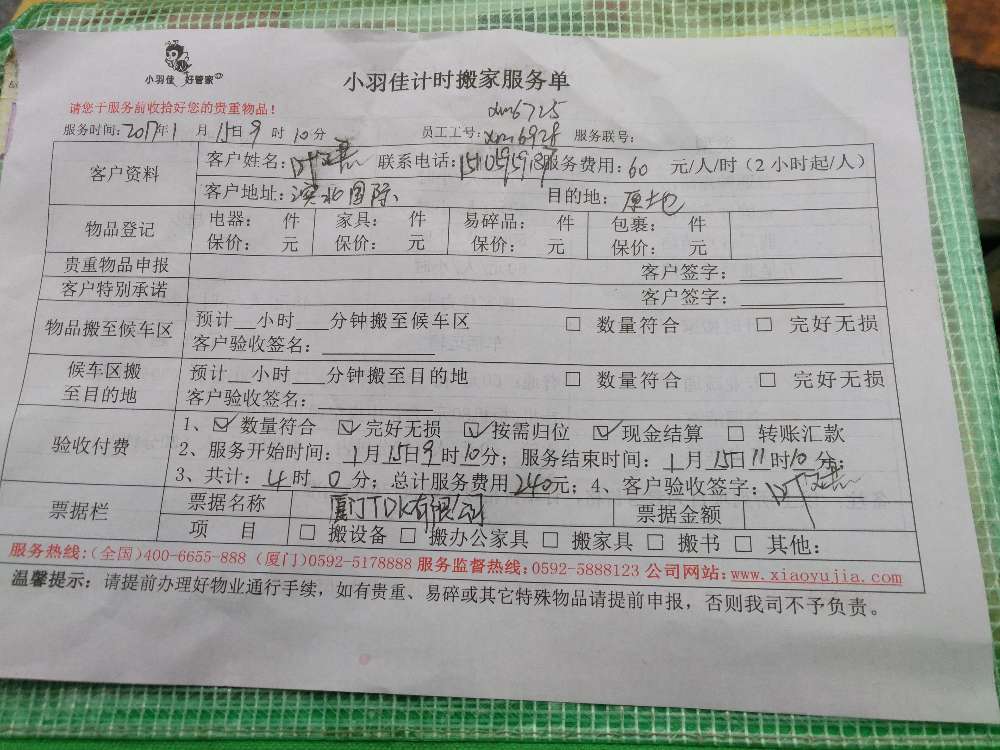 小羽佳 好管家
小羽佳计时搬家服务单
请您于服务前收拾好您的贵重物品！
xm6725
服务时间：2017年1月15日9时10分 员工工号： 服务联号：
客户资料 客户姓名：叶 联系电话： 服务费用：60 元/人/时（2小时起/人）
客户地址：滨北国际、 目的地：原地
物品登记 电器： 件 家具： 件 易碎品： 件 包裹： 件
保价： 元 保价： 元 保价： 元 保价： 元
贵重物品申报 客户签字：
客户特别承诺 客户签字：
物品搬至候车区 预计__小时___分钟搬至候车区 □ 数量符合 □ 完好无损
客户验收签名：
候车区搬至目的地 预计__小时___分钟搬至目的地 □ 数量符合 □ 完好无损
客户验收签名：
验收付费 1、☑数量符合 ☑完好无损 ☑按需归位 ☑现金结算 □ 转账汇款
2、服务开始时间：1月15日9时10分；服务结束时间：1月15日11时10分；
3、共计：4时0分；总计服务费用240元；4、客户验收签字：叶
票据栏 票据名称 厦门TDK有限公司 票据金额
项 目 □ 搬设备 □ 搬办公家具 □ 搬家具 □ 搬书 □ 其他：
服务热线：(全国)400-6655-888 (厦门)0592-5178888 服务监督热线：0592-5888123 公司网站：www.xiaoyujia.com
温馨提示：请提前办理好物业通行手续，如有贵重、易碎或其它特殊物品请提前申报，否则我司不予负责。